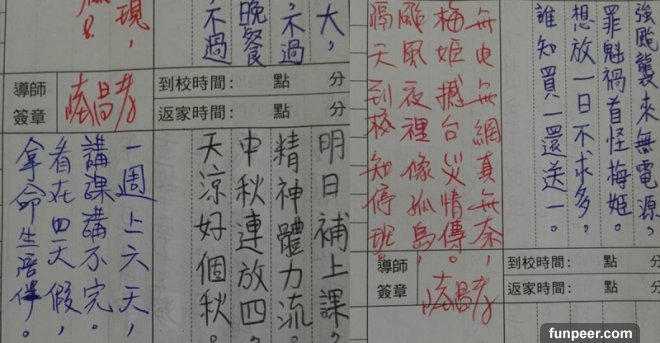 大，
，不過
晚餐
，不過
現，
導師
簽章
到校時間： 點 分
返家時間： 點 分
明日補上課，
精神體力流。
中秋連放四，
天涼好個秋。
一週上六天，
講課講不完。
看在四天假，
拿命生陪伴。
強颱襲來無電源，
罪魁禍首怪梅姬。
想放一日不求多，
誰知買一還送一。
無电無網真無奈，
梅姬撼台災情傳。
颱風夜裡像孤島，
隔天到校知停班。
導師
簽章
到校時間： 點 分
返家時間： 點 分
funpeer.com